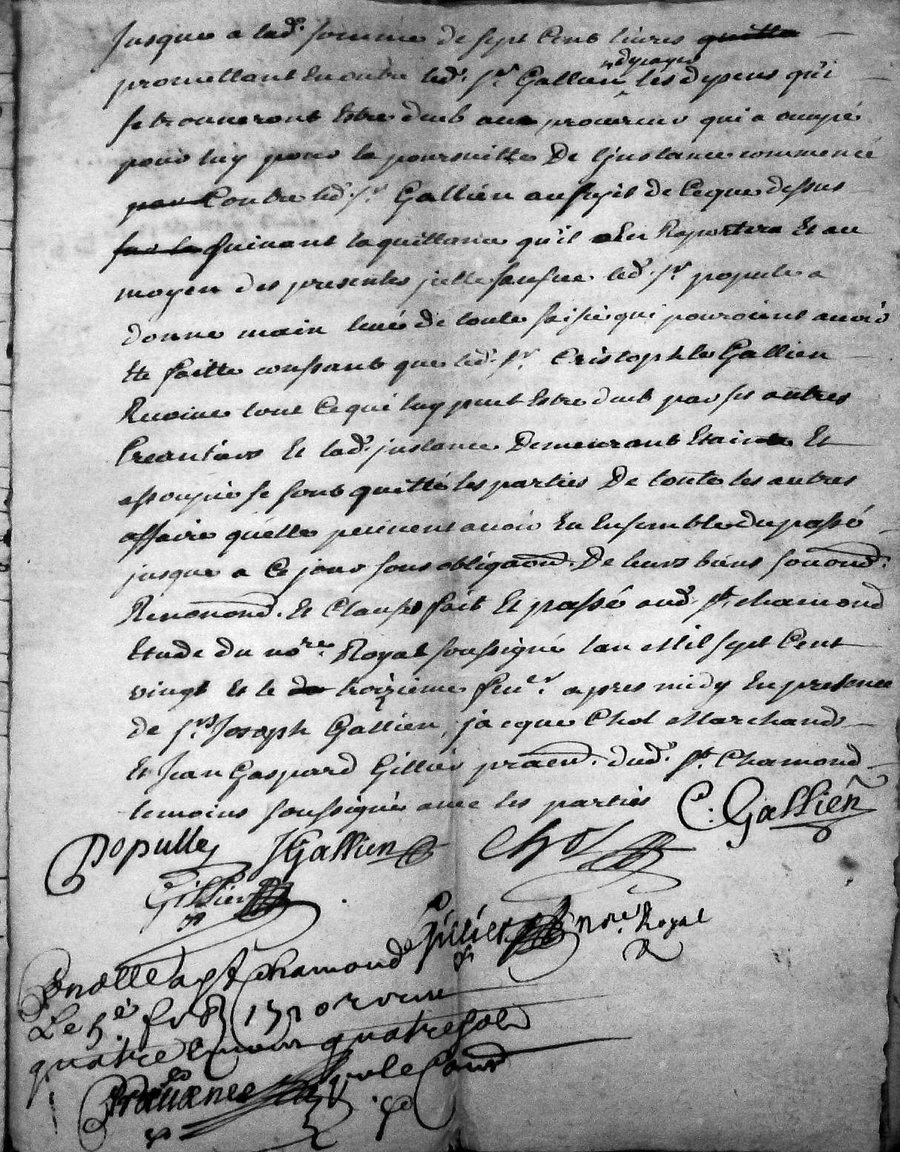 jusque a lad. somme de sept Cent livres quitte
promettant en outre led. Sr. Gallien de payer les depens qui
se trouveront Estre deub aux procureur qui a occupé
pour luy pour la poursuitte De Ljnstance commencé
par Contre led. Sr. Gallien au sujet de Ceque dessus
sur la suivant la quittance qu'il En Raportera Et au
moyen des presentes led. Sr populle a
donne main levée de toute saisie qui pouroient avoir
Ete faitte consentant que led. Sr. Cristophle Gallien
Recoive tout Ce qui luy peut Estre deub par ses autres
Creantiers Et lad. jnstance Demeurant Etainte Et
assoupie se sont quitté les parties De toute les autres
affaire quelle peuvent avoir Eu Ensemble du passé
jusque a Ce jour sous obligaon. De leurs biens
Renonond. Et Clauses fait Et passé aud. St. chamond
Etude du nore. Royal soussigné lan Mil sept Cent
vingt Et le troizieme fevr. apres midy En presence
de Sr. Joseph Gallien, jacque Chol Marchands
Et Jean Gaspard Gillier praen. dud. St. Chamond
temoins soussignés avec les parties C. Gallien
Populle JGallien Chol
Gillier
Gillier nore. Royal
Contollé a St chamond
Le 5e fevr 1720 recu
quatre quatre sols